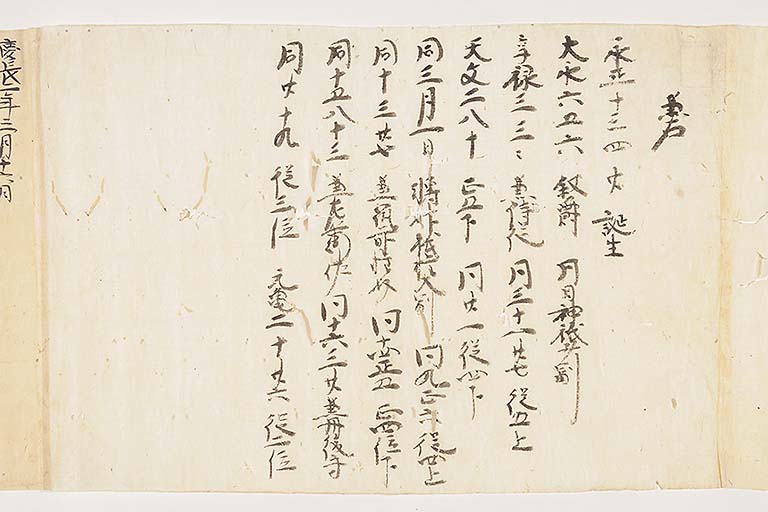 兼右
永正十三四廿 誕生
大永六五六 叙爵 同日神祇少副
享禄三三ミ 兼侍従 同三十一廿七 従五上
天文二八十 正五下 同廿一従四下
同三月一日 轉神祇権大副 同九正六従四上
同十三廿七 兼 同 正四位下
同十五八十三 兼左兵衛佐 同十六三廿兼丹後守
同廿十九 従三位 元亀二十廿六 従二位
慶長 年三月 日